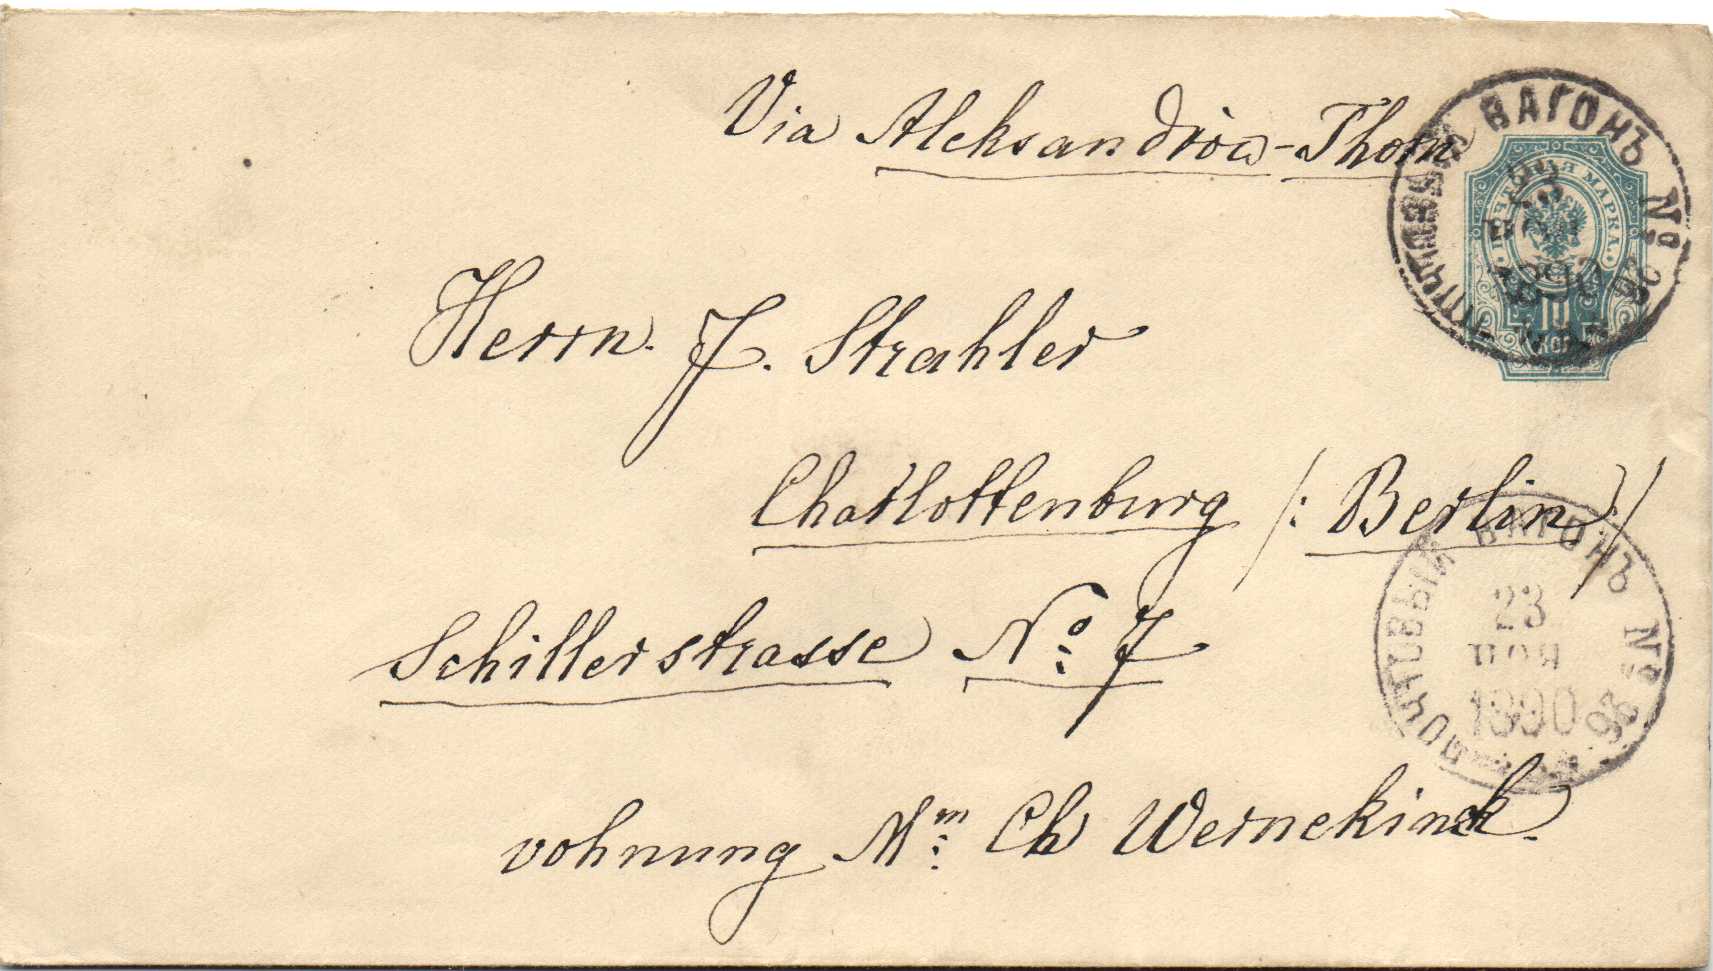 Via Aleksandrów-Thorn
ПОЧТОВЫЙ ВАГОНЪ № 96
1890
ПОЧТОВАЯ МАРКА
10
КОП
Herrn. J. Strahler
Charlottenburg /: Berlin :/
Schillerstrasse No. 7
ПОЧТОВЫЙ ВАГОНЪ № 96
23
НОЯ
1890
vohnung Mm: Ch Wernekinck.